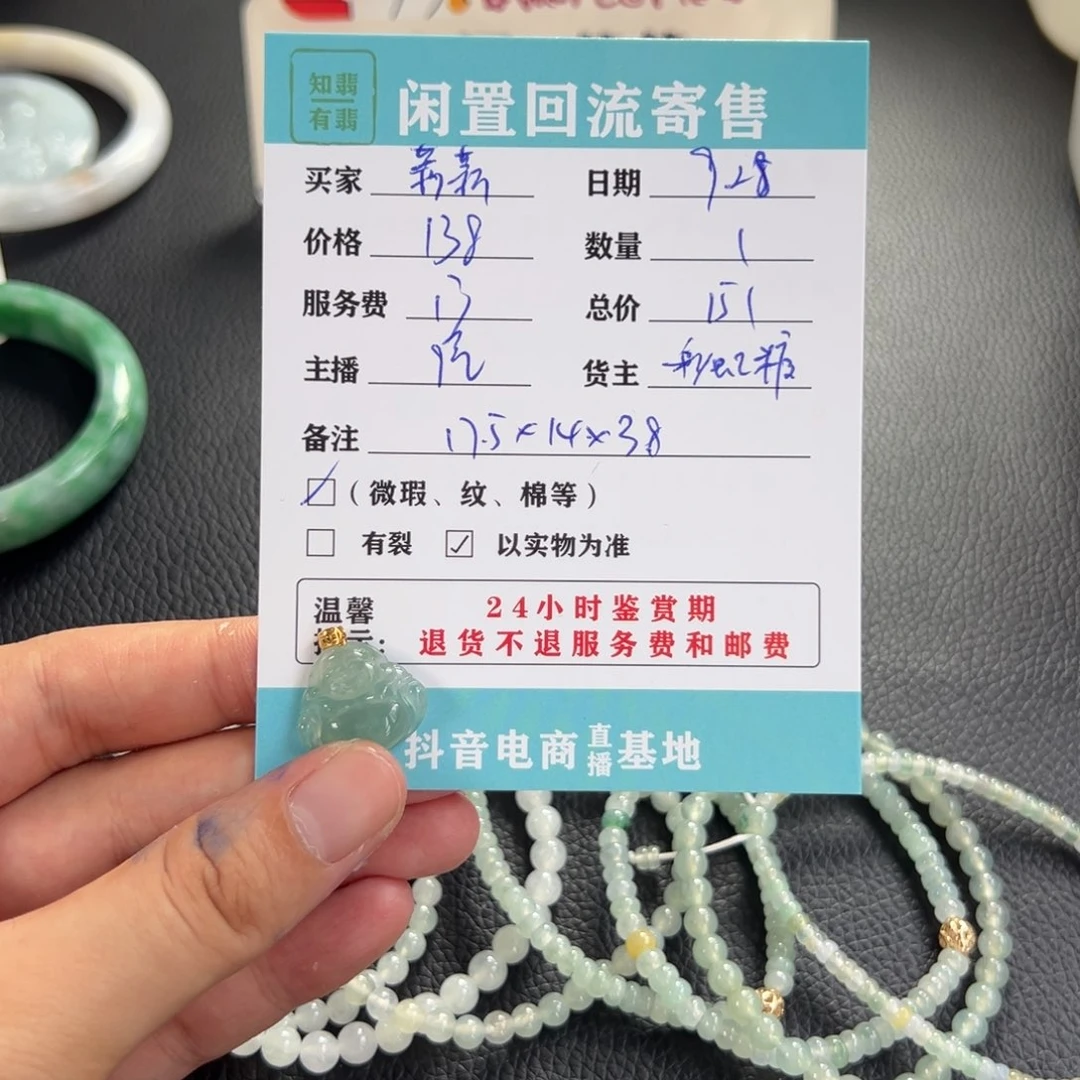 知翡
有翡
闲置回流寄售
买家 薪薪 日期 9.28
价格 138 数量 1
服务费 13 总价 151
主播 货主 彩虹糖
备注 17.5×14×3.8
(微瑕、纹、棉等)
有裂 ✓ 以实物为准
温馨 24小时鉴赏期
提示: 退货不退服务费和邮费
抖音电商直播基地